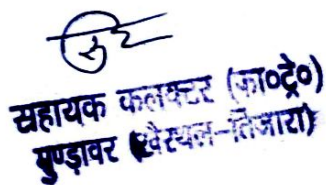 सहायक कलक्टर (का०ट्रे०)
मुण्डावर (खैरथल-तिजारा)